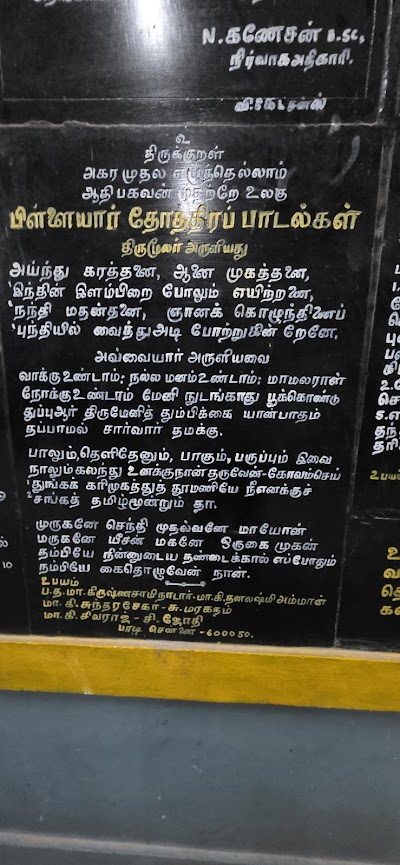 N.கணேசன் B.SC,
நிர்வாகஅதிகாரி.
உ
திருக்குறள்
அகர முதல எழுத்தெல்லாம்
ஆதி பகவன் முதற்றே உலகு
பிள்ளையார் தோத்திரப் பாடல்கள்
திருமூலர் அருளியது
அய்ந்து கரத்தனை, ஆனை முகத்தனை,
இந்தின் இளம்பிறை போலும் எயிற்றனை,
நந்தி மதன்தனை, ஞானக் கொழுந்தினைப்
புந்தியில் வைத்துஅடி போற்றுகின் றேனே.
அவ்வையார் அருளியவை
வாக்குஉண்டாம்; நல்ல மனம்உண்டாம்; மாமலராள்
நோக்குஉண்டாம் மேனி நுடங்காது பூக்கொண்டு
துப்புஆர் திருமேனித் தும்பிக்கை யான்பாதம்
தப்பாமல் சார்வார் தமக்கு.
பாலும்,தெளிதேனும், பாகும், பருப்பும் இவை
நாலும்கலந்து உனக்குநான் தருவேன்-கோலம்செய்
துங்கக் கரிமுகத்துத் தூமணியே நீஎனக்குச்
சங்கத் தமிழ்மூன்றும் தா.
முருகனே செந்தி முதல்வனே மாயோன்
மருகனே யீசன் மகனே ஒருகை முகன்
தம்பியே நின்னுடைய தண்டைக்கால் எப்போதும்
நம்பியே கைதொழுவேன் நான்.
உபயம்
ப.த.மா.கிருஷ்ணசாமிநாடார்-மா.கி.தனலஷ்மிஅம்மாள்
மா.கி.சுந்தரசேகர-சு.மரகதம்
மா.கி.சிவராஜ-சி.ஜோதி
பாடி சென்னை-600050.